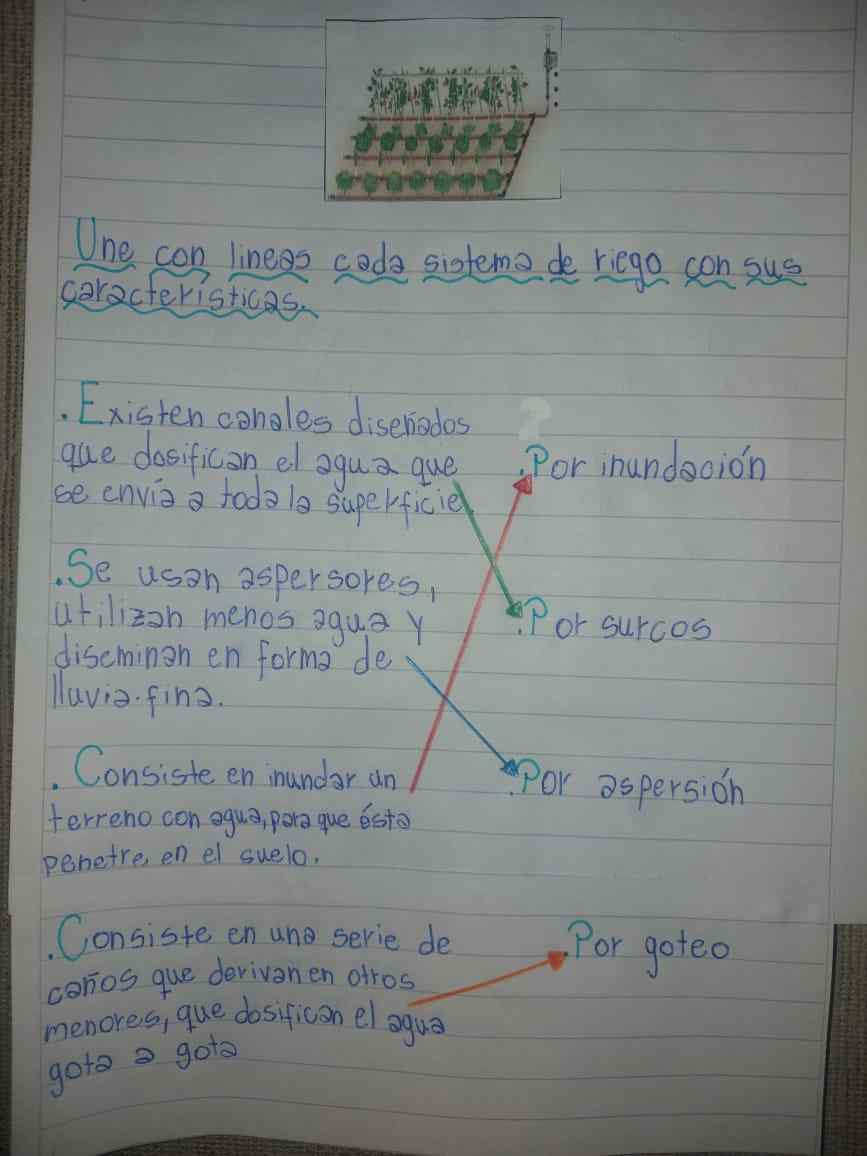 Une con lineas cada sistema de riego con sus
características.
. Existen canales diseñados
que dosifican el agua que
se envía a toda la superficie.
. Por inundación
. Se usan aspersores,
utilizan menos agua y
diseminan en forma de
lluvia fina.
. Por surcos
. Consiste en inundar un
terreno con agua, para que ésta
penetre en el suelo.
. Por aspersión
. Consiste en una serie de
caños que derivan en otros
menores, que dosifican el agua
gota a gota
. Por goteo